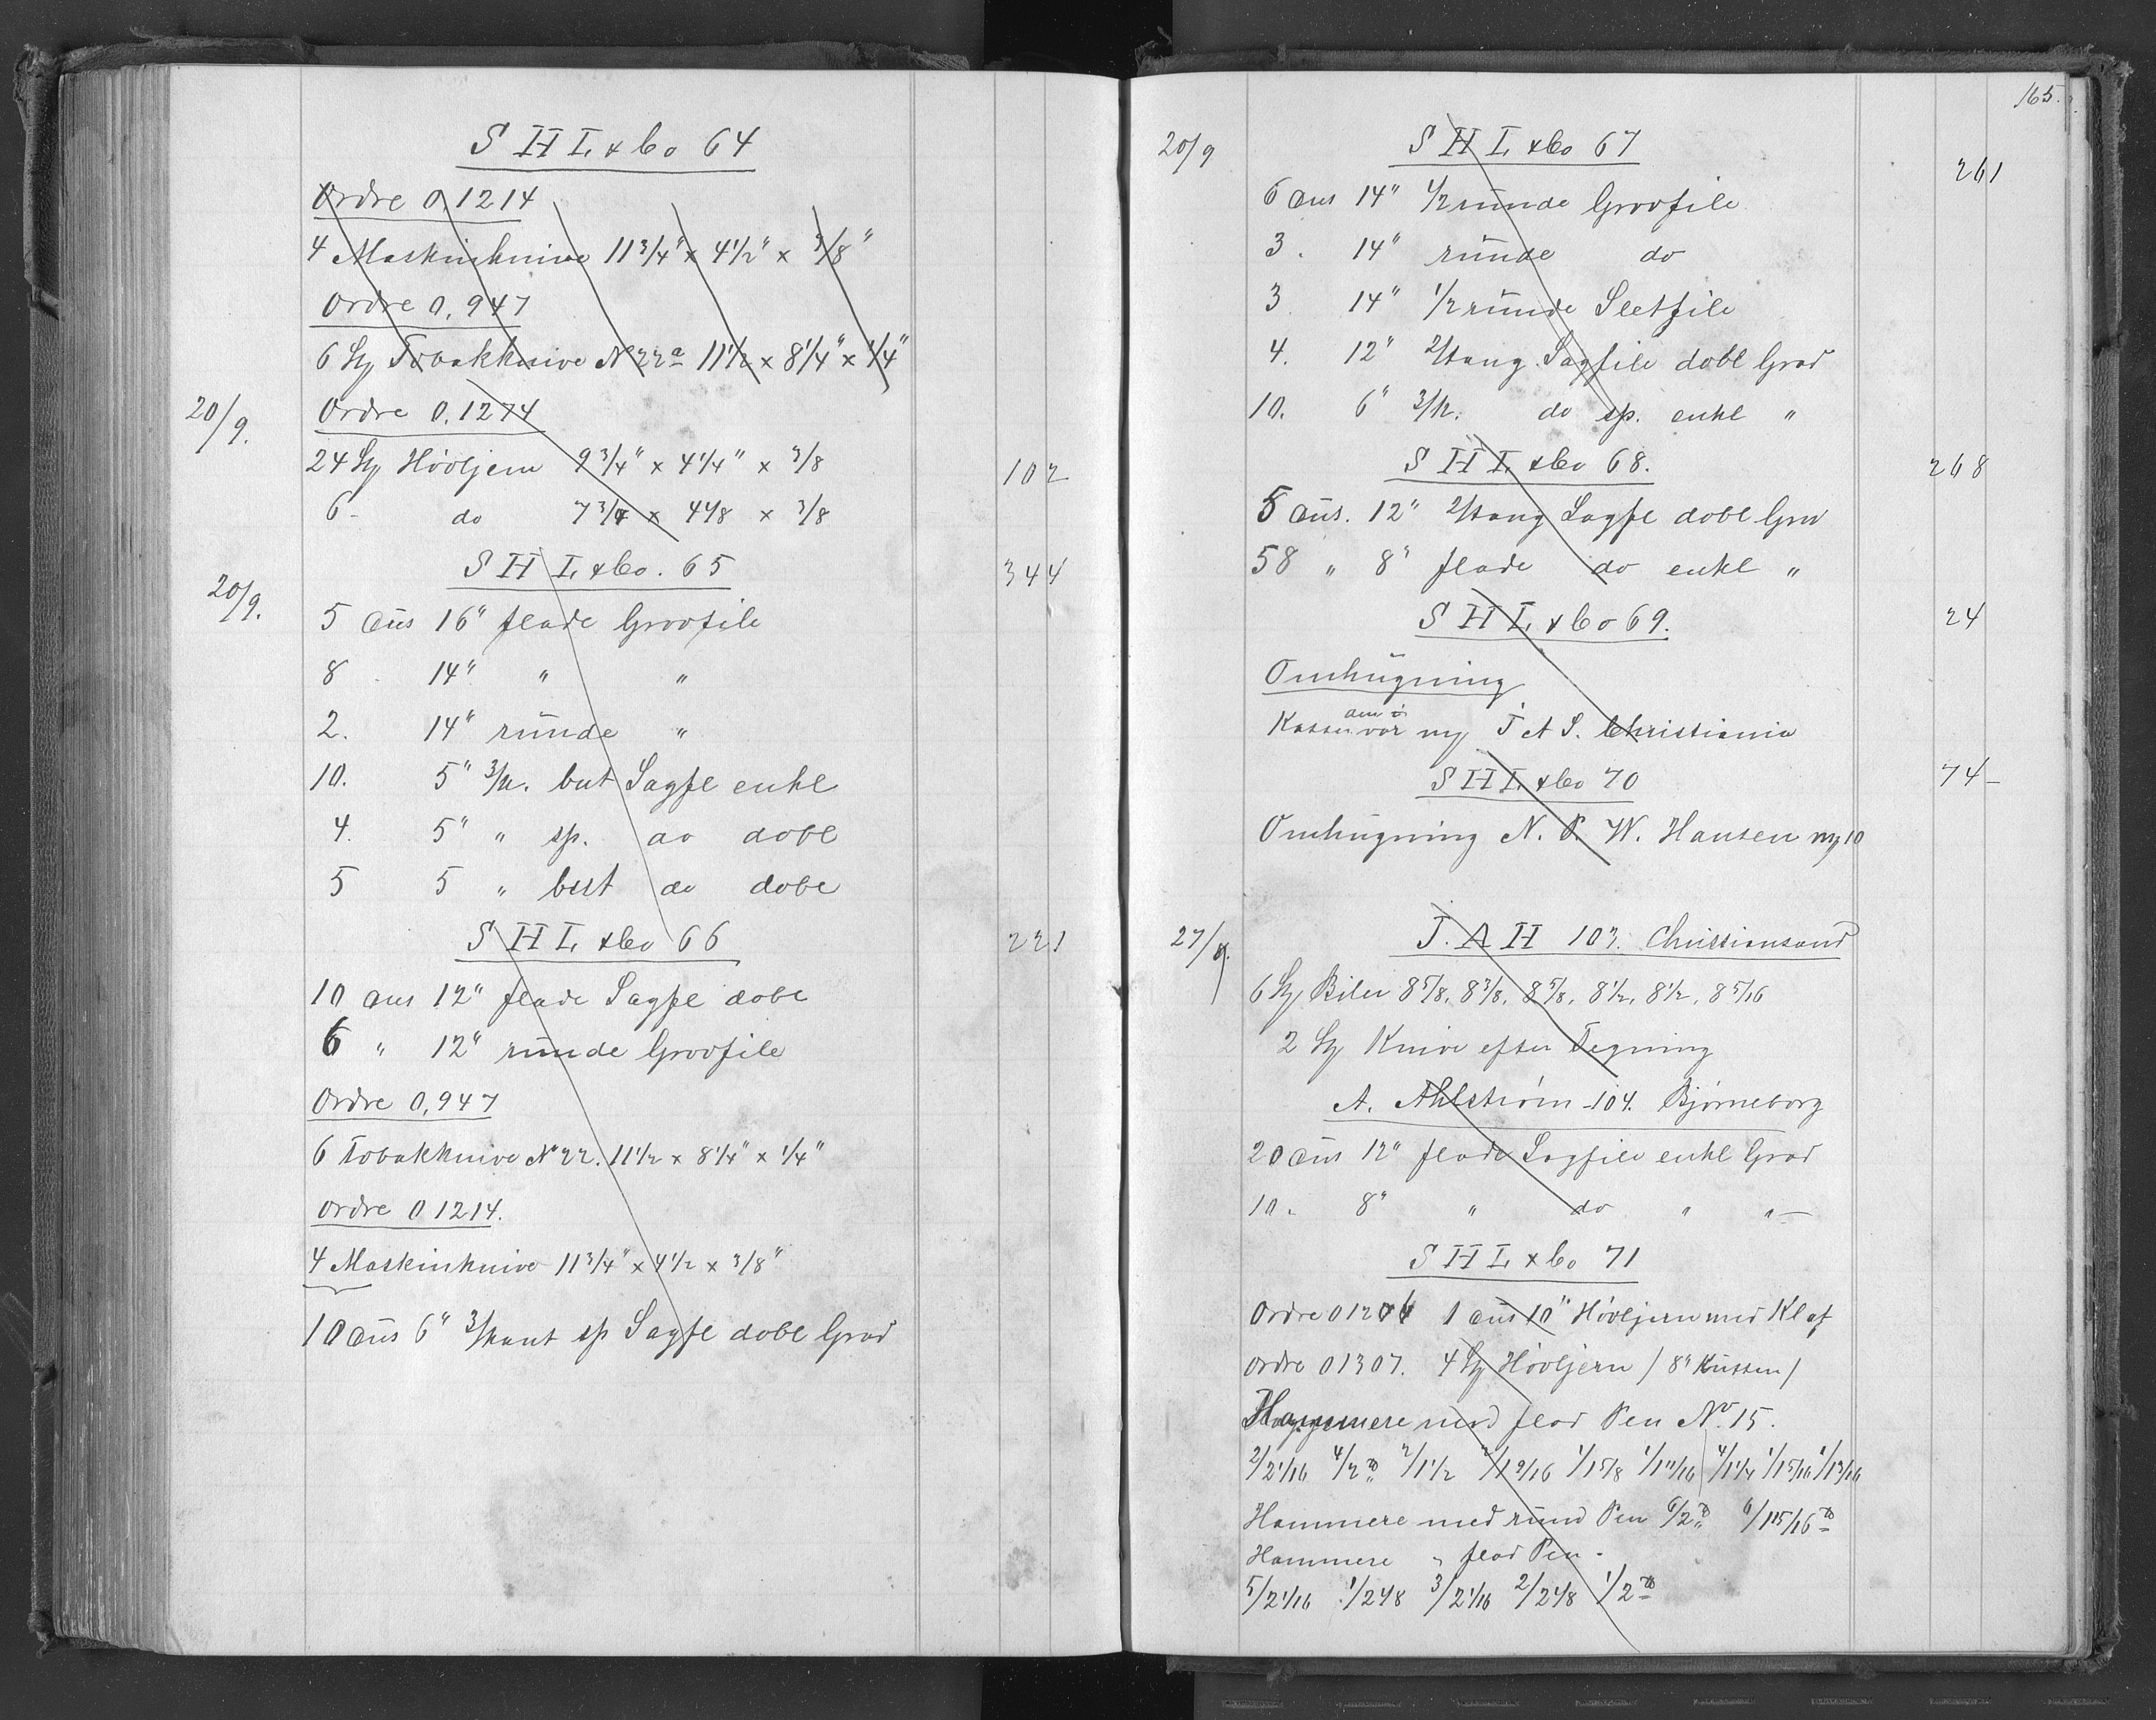 S H L & Co 64
Ordre 0,1214
4 Maskinknive 11 3/4" x 4 1/2" x 3/8"
Ordre 0,947
6 St Tobakknive No 22a 11 1/2 x 8 1/4" x 1/4"
20/9. Ordre 0,1274
24 St Høvljern 9 3/4" x 4 1/4" x 3/8 102
6 - do 7 3/4 x 4 1/8 x 3/8
S H L & Co. 65 344
20/9. 5 Dus 16" flade Grovfile
8 14" " "
2. 14" runde "
10. 5" 3/k. but Sagfl enkl
4. 5" " sp. do dobl
5 5 " but do dobl
S H L & Co 66 221
10 Dus 12" flade Sagfl dobl
6 " 12" runde Grovfile
Ordre 0,947
6 Tobakknive No 22. 11 1/2 x 8 1/4" x 1/4"
Ordre 0 1214.
4 Maskinknive 11 3/4" x 4 1/2 x 3/8"
10 Dus 6" 3/kant sp Sagfl dobl Grad
165.
20/9 S H L & Co 67 261
6 Dus 14" 1/2 runde Grovfile
3. 14" runde do
3. 14" 1/2 runde Sletfile
4. 12" 2/tang Sagfile dobl Grad
10. 6" 3/k. do sp. enkl "
S H L & Co 68. 268
5 Dus. 12" 2/tang Sagfl dobl Gra
58 " 8" flade do enkl "
S H L & Co 69. 24
Omhugning
ny T A S. Christiania
S H L & Co 70 74-
Omhugning N. P. W. Hansen ny 10
27/9. J. A H 103. Christiansand
6 St Biler 8 5/8, 8 3/8, 8 5/8, 8 1/2, 8 1/2, 8 5/16
2 St Knive efter Tegning
A. Ahlstrøm - 104. Bjørneborg
20 Dus 12" flade Sagfile enkl Grad
10. 8" " do " "-
S H L & Co 71
1 Dus 10" Høvljern med Klaf
Ordre 01307. 4 St Høvljern / 8" Kussen /
Hammere med flad Pen No 15.
2/2 1/16 4/2 2/1 1/2 2/1 9/16 1/1 5/8 1/1 11/16 4/1 1/4 1/1 5/16 1/1 3/16
Hammere med rund Pen 6/2 6/1 15/16
Hammere " flad Pen -
5/2 1/16 1/2 1/8 3/2 1/16 2/2 1/8 1/2